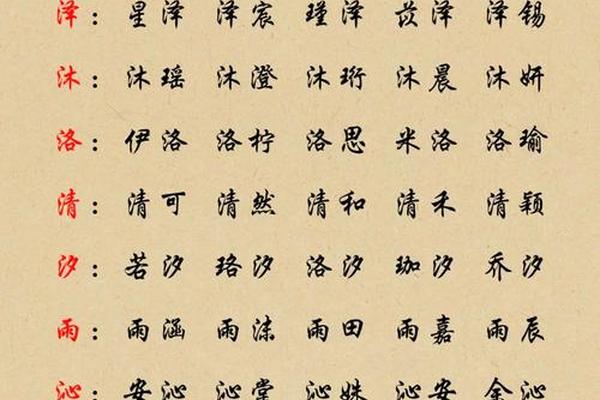 泽：星泽 泽宸 瑾泽 苡泽 泽锡
沐：沐瑶 沐澄 沐珩 沐晨 沐妍
洛：伊洛 洛柠 洛思 米洛 洛瑜
清：清可 清然 清和 清禾 清颖
汐：若汐 珞汐 洛汐 珈汐 乔汐
雨：雨涵 雨沫 雨田 雨嘉 雨辰
沁：安沁 沁棠 沁姝 沁安 金沁